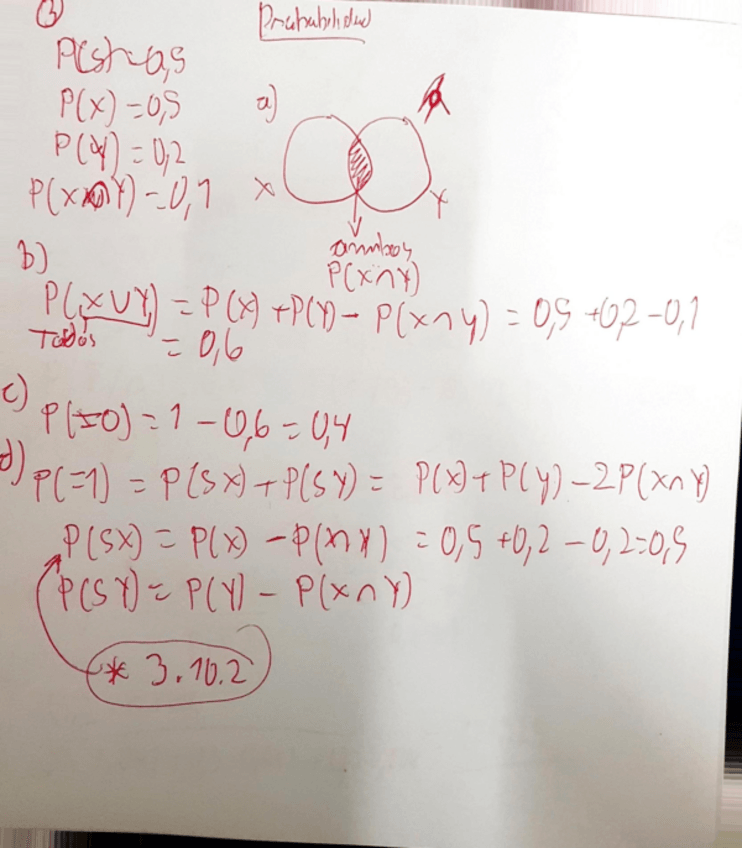 3)
Probabilidad
P(S)=0,5
P(X)=0,5
P(Y)=0,2
P(X∩Y)=0,1
a)
X
Y
ambos
P(X∩Y)
b)
P(X∪Y) = P(X)+P(Y)- P(X∩Y) = 0,5+0,2-0,1
Todos
= 0,6
c)
P(=0)=1-0,6=0,4
d)
P(=1) = P(SX)+P(SY) = P(X)+P(Y)-2P(X∩Y)
P(SX) = P(X) -P(X∩Y) = 0,5+0,2-0,2=0,5
P(SY)= P(Y)- P(X∩Y)
* 3.10.2